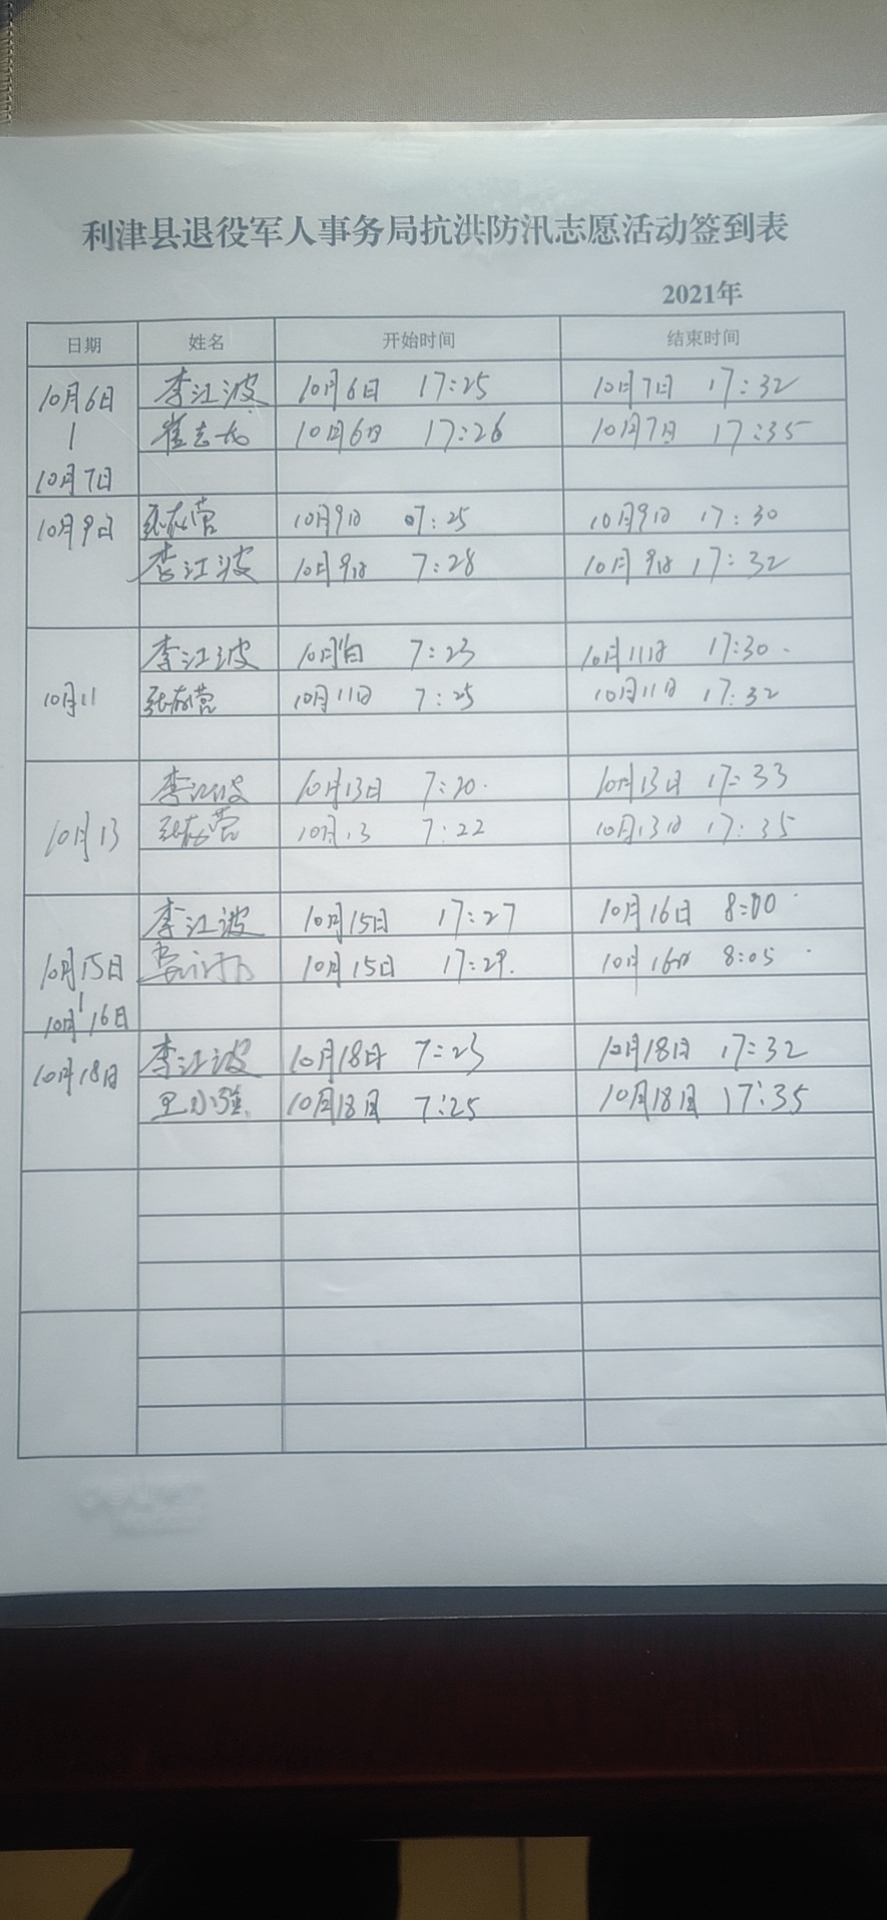 利津县退役军人事务局抗洪防汛志愿活动签到表
2021年
日期 姓名 开始时间 结束时间
10月6日 李江波 10月6日 17:25 10月7日 17:32
| 崔志龙 10月6日 17:26 10月7日 17:35
10月7日
10月9日 张存营 10月9日 07:25 10月9日 17:30
李江波 10月9日 7:28 10月9日 17:32
李江波 10月11日 7:23 10月11日 17:30
10月11 张存营 10月11日 7:25 10月11日 17:32
李江波 10月13日 7:20 10月13日 17:33
10月13 张存营 10月13 7:22 10月13日 17:35
李江波 10月15日 17:27 10月16日 8:00
10月15日 10月15日 17:29 10月16日 8:05
|
10月16日
10月18日 李江波 10月18日 7:23 10月18日 17:32
王小强 10月18日 7:25 10月18日 17:35